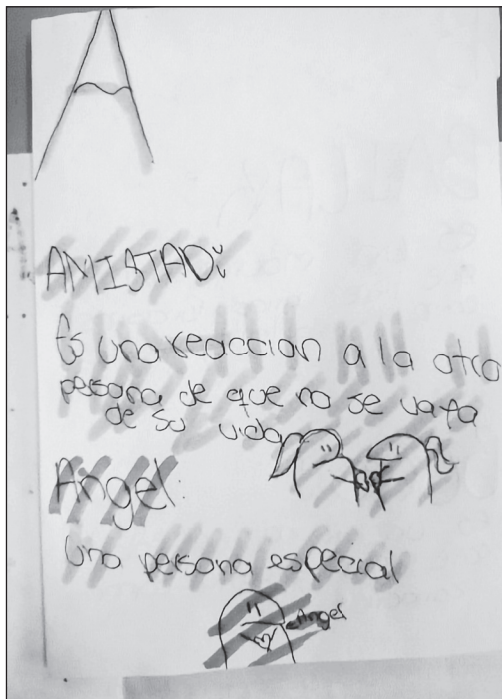 A
AMISTAD:
Es una reaccion a la otra
persona de que no se vaya
de su vida
Angel:
Una persona especial
Angel